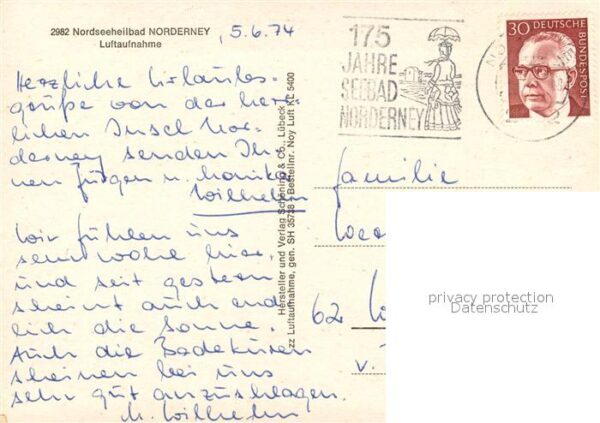 2982 Nordseeheilbad NORDERNEY
Luftaufnahme
5.6.74
Herzliche Urlaubs-
grüße von der herr-
lichen Insel Nor-
derney senden Ih-
nen Jürgen u. Monika
Wilhelm
Wir fühlen uns
sehr wohl hier,
und seit gestern
scheint auch end
lich die Sonne.
Auch die Badekuren
scheinen bei uns
sehr gut anzuschlagen.
M. Wilhelm
Hersteller und Verlag Schöning & Co., Lübeck
zz Luftaufnahme, gen. SH 35738 - Bestellnr. Noy Luft KL 5400
175
JAHRE
SEEBAD
NORDERNEY
30 DEUTSCHE
BUNDESPOST
Familie
62
v.
privacy protection
Datenschutz